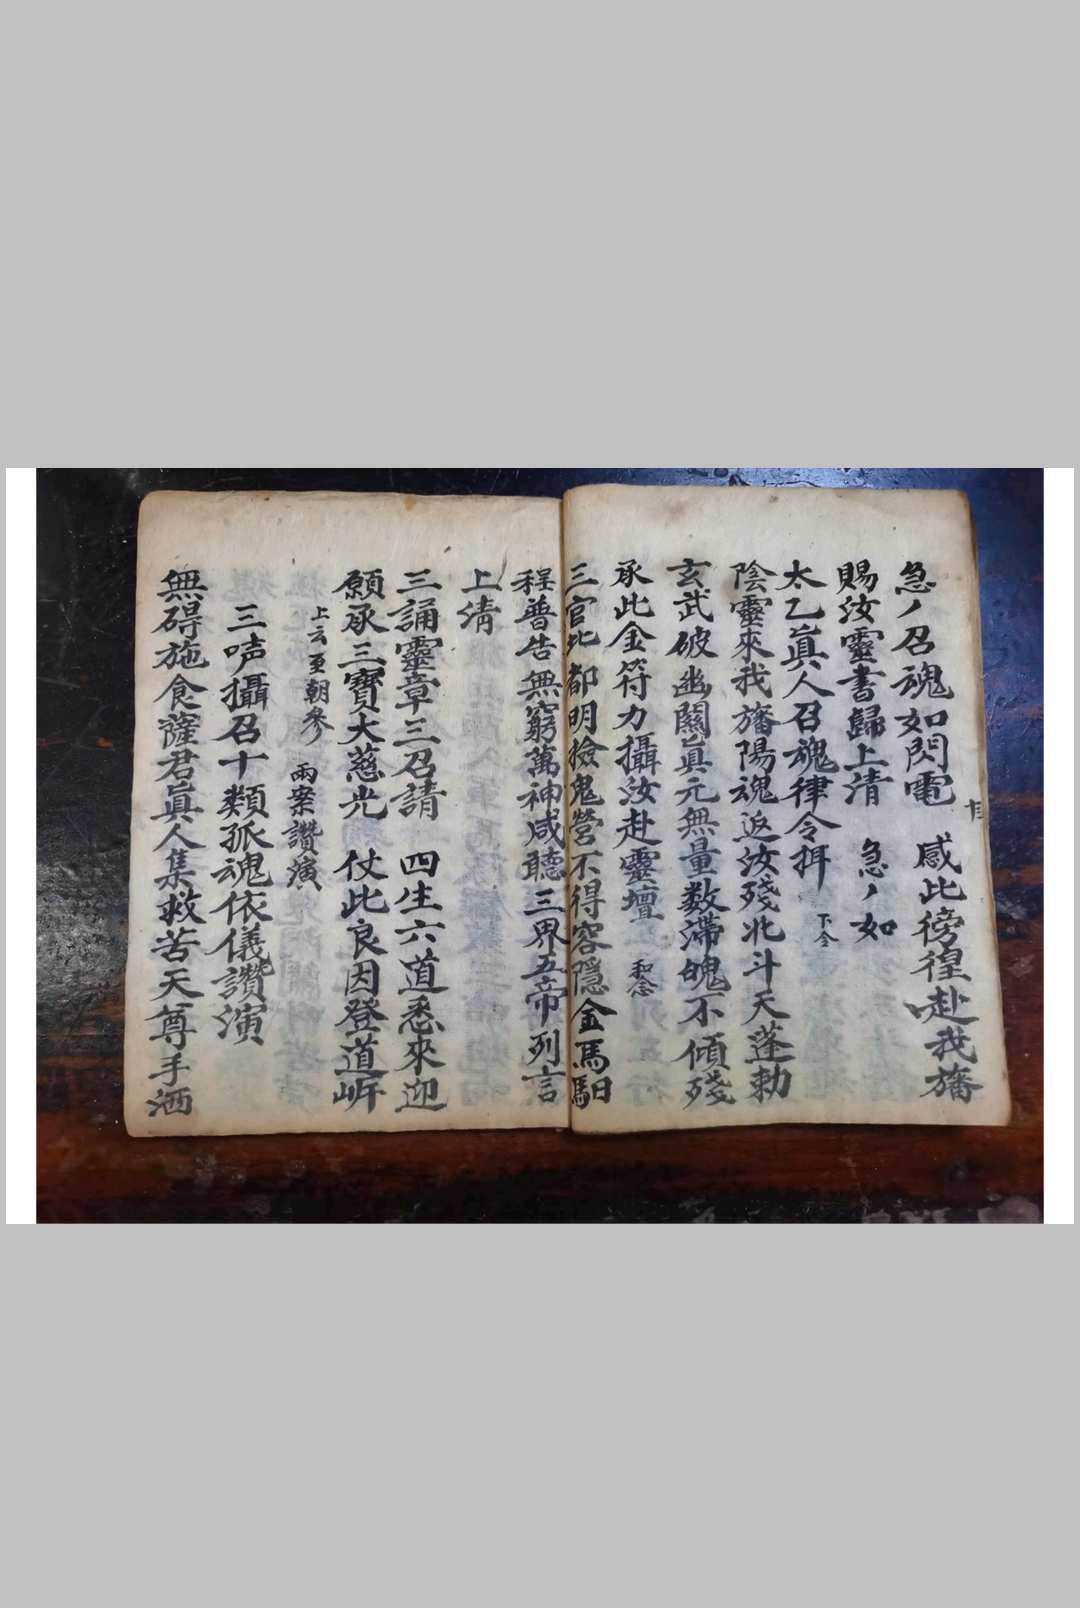 急〃召魂如閃電　感此徬徨赴我旛
賜汝靈書歸上清　急〃如
太乙眞人召魂律令㧈　下令
陰靈來我旛陽魂返汝殘北斗天蓬勅
玄武破幽關眞元無量数滯魄不傾殘
承此金符力攝汝赴靈壇　和念
三官北都明撿鬼營不得容隱金馬馹
程普告無窮萬神咸聽三界五帝列言
上清
三誦靈章三召請　四生六道悉來迎
願承三寳大慈光　仗此良因登道岍
上云至朝參　兩案讚演
三声攝召十類孤魂依儀讚演
無碍施食薩君眞人集救苦天尊手洒